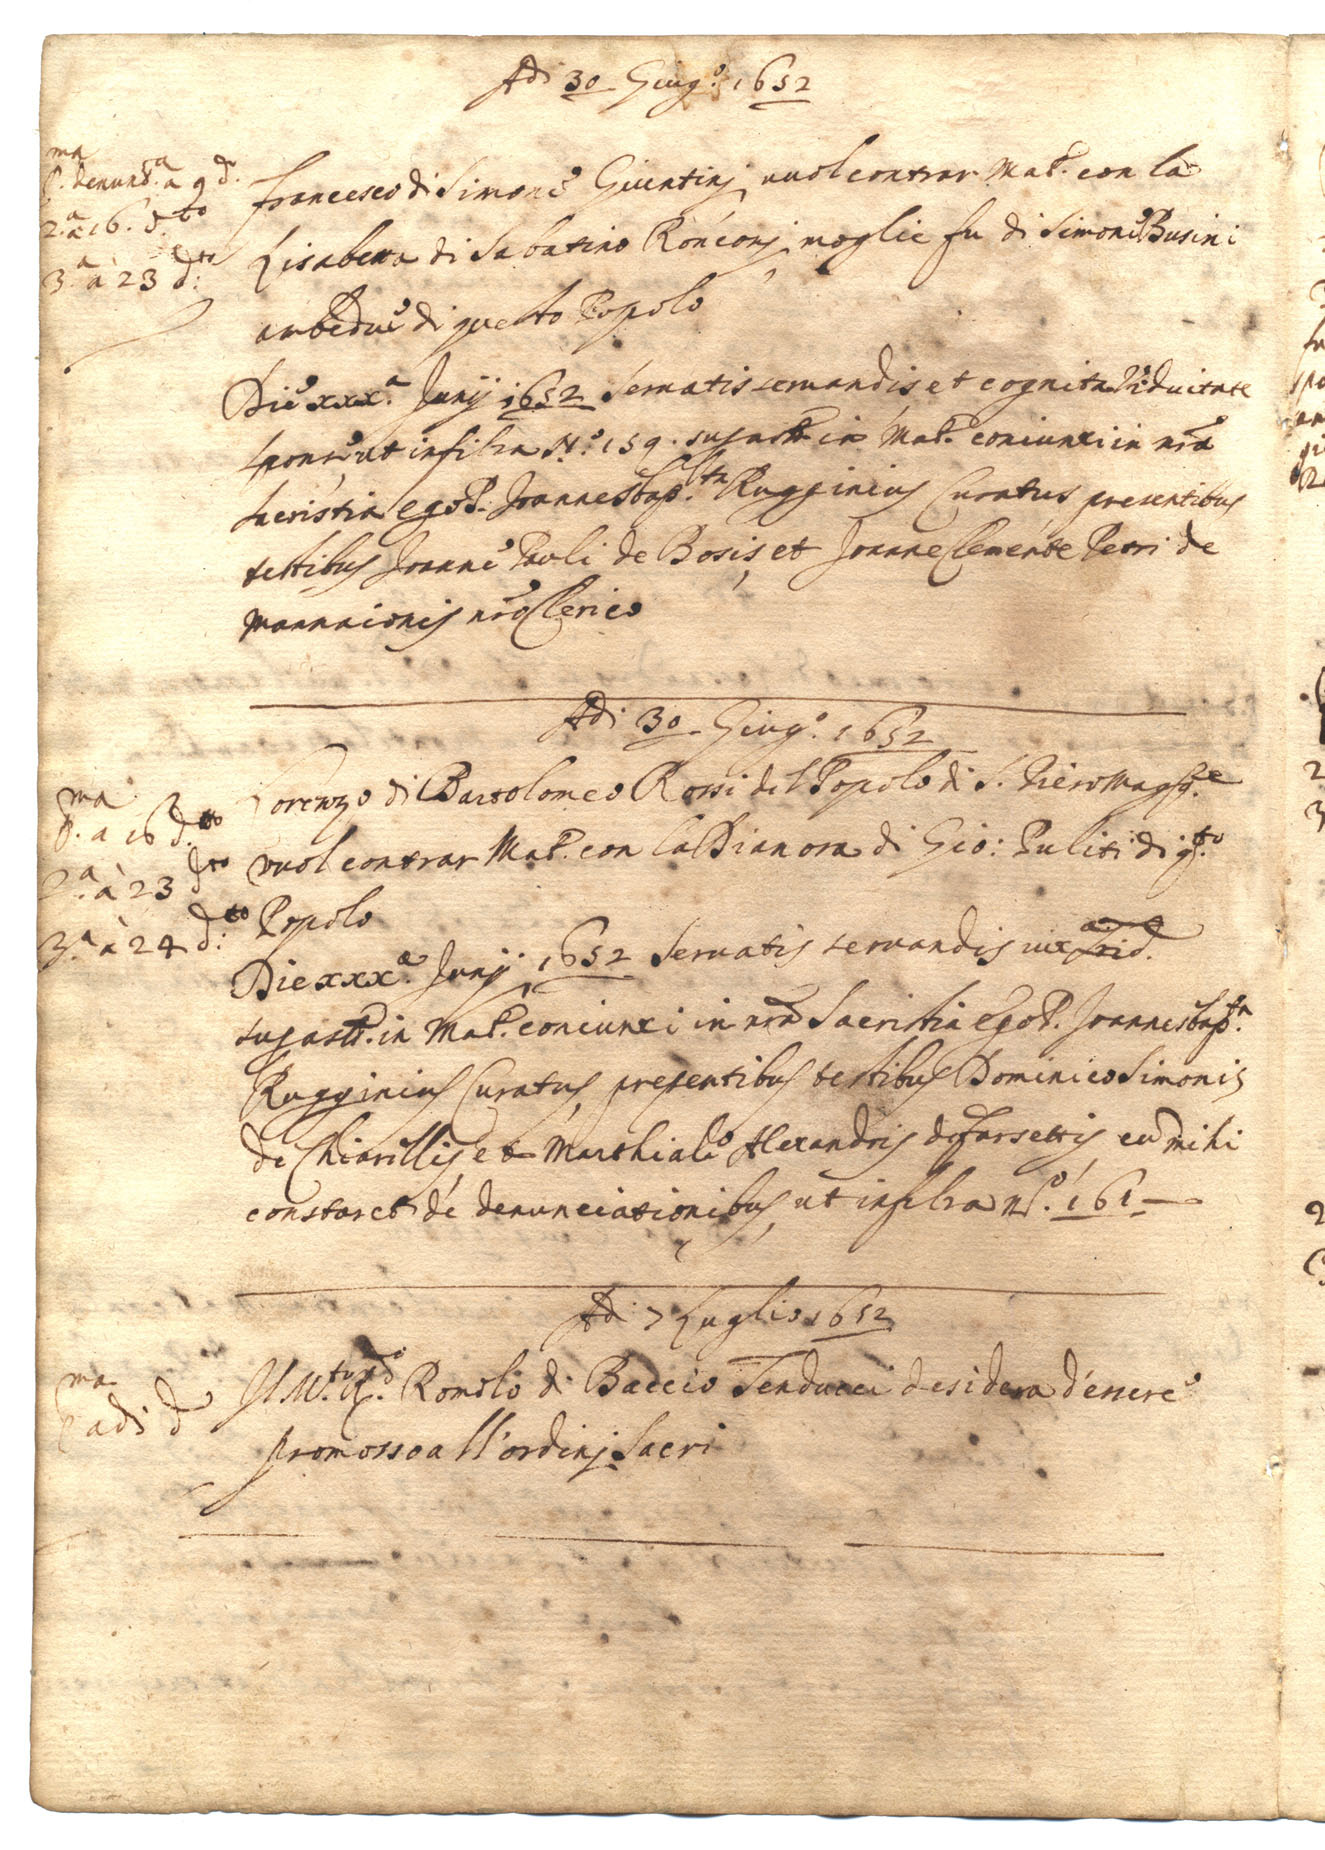 Adi 30 Giug.o 1652
p.ma denunt.a a 9 d.o
2.a a 16. d.to
3.a à 23 d.to
Francesco di Simone Giuntinj vuol contrar Mat.o con la
Lisabetta di Sabatino Ronconj moglie fu di Simone Busini
ambedue di questo Popolo
Die xxx.a Junij 1652 Seruatis seruandis et cognita Viduitate
sponse ut in filza N.o 159. supasc.ti in Mat.o coniunxi in nra
sacristia ego P. Joannesbap.ta Rugginius Curatus presentibus
testibus Joanne Pauli de Bosis, et Joanne Clemente Petri de
Mannaionis nro Clerico
Adi 30 Giug.o 1652
p.ma a 16 d.to
2.a à 23 d.to
3.a à 24 d.to
Lorenzo di Bartolomeo Rossi del Popolo di S. Piero Magg.re
vuol contrar Mat.o con la Dianora di Gio: Puliti di q.to
Popolo
Die xxx.a Junij 1652 Seruatis seruandis iux.a
supasc.ti in Mat.o coniunxi in nra Sacristia ego P. Joannesbap.ta
Rugginius Curatus, presentibus testibus Dominico Simonis
de Chiarillis, et Marthiale Alexandris de Farsettis, cu mihi
constaret de denunciationibus, ut in filza N.o 161
Adi 7 Luglio 1652
p.ma adi d.o
Il M.to R.do Romolo di Baccio Tenducci desidera d'essere
promosso a ll'ordinj Sacri